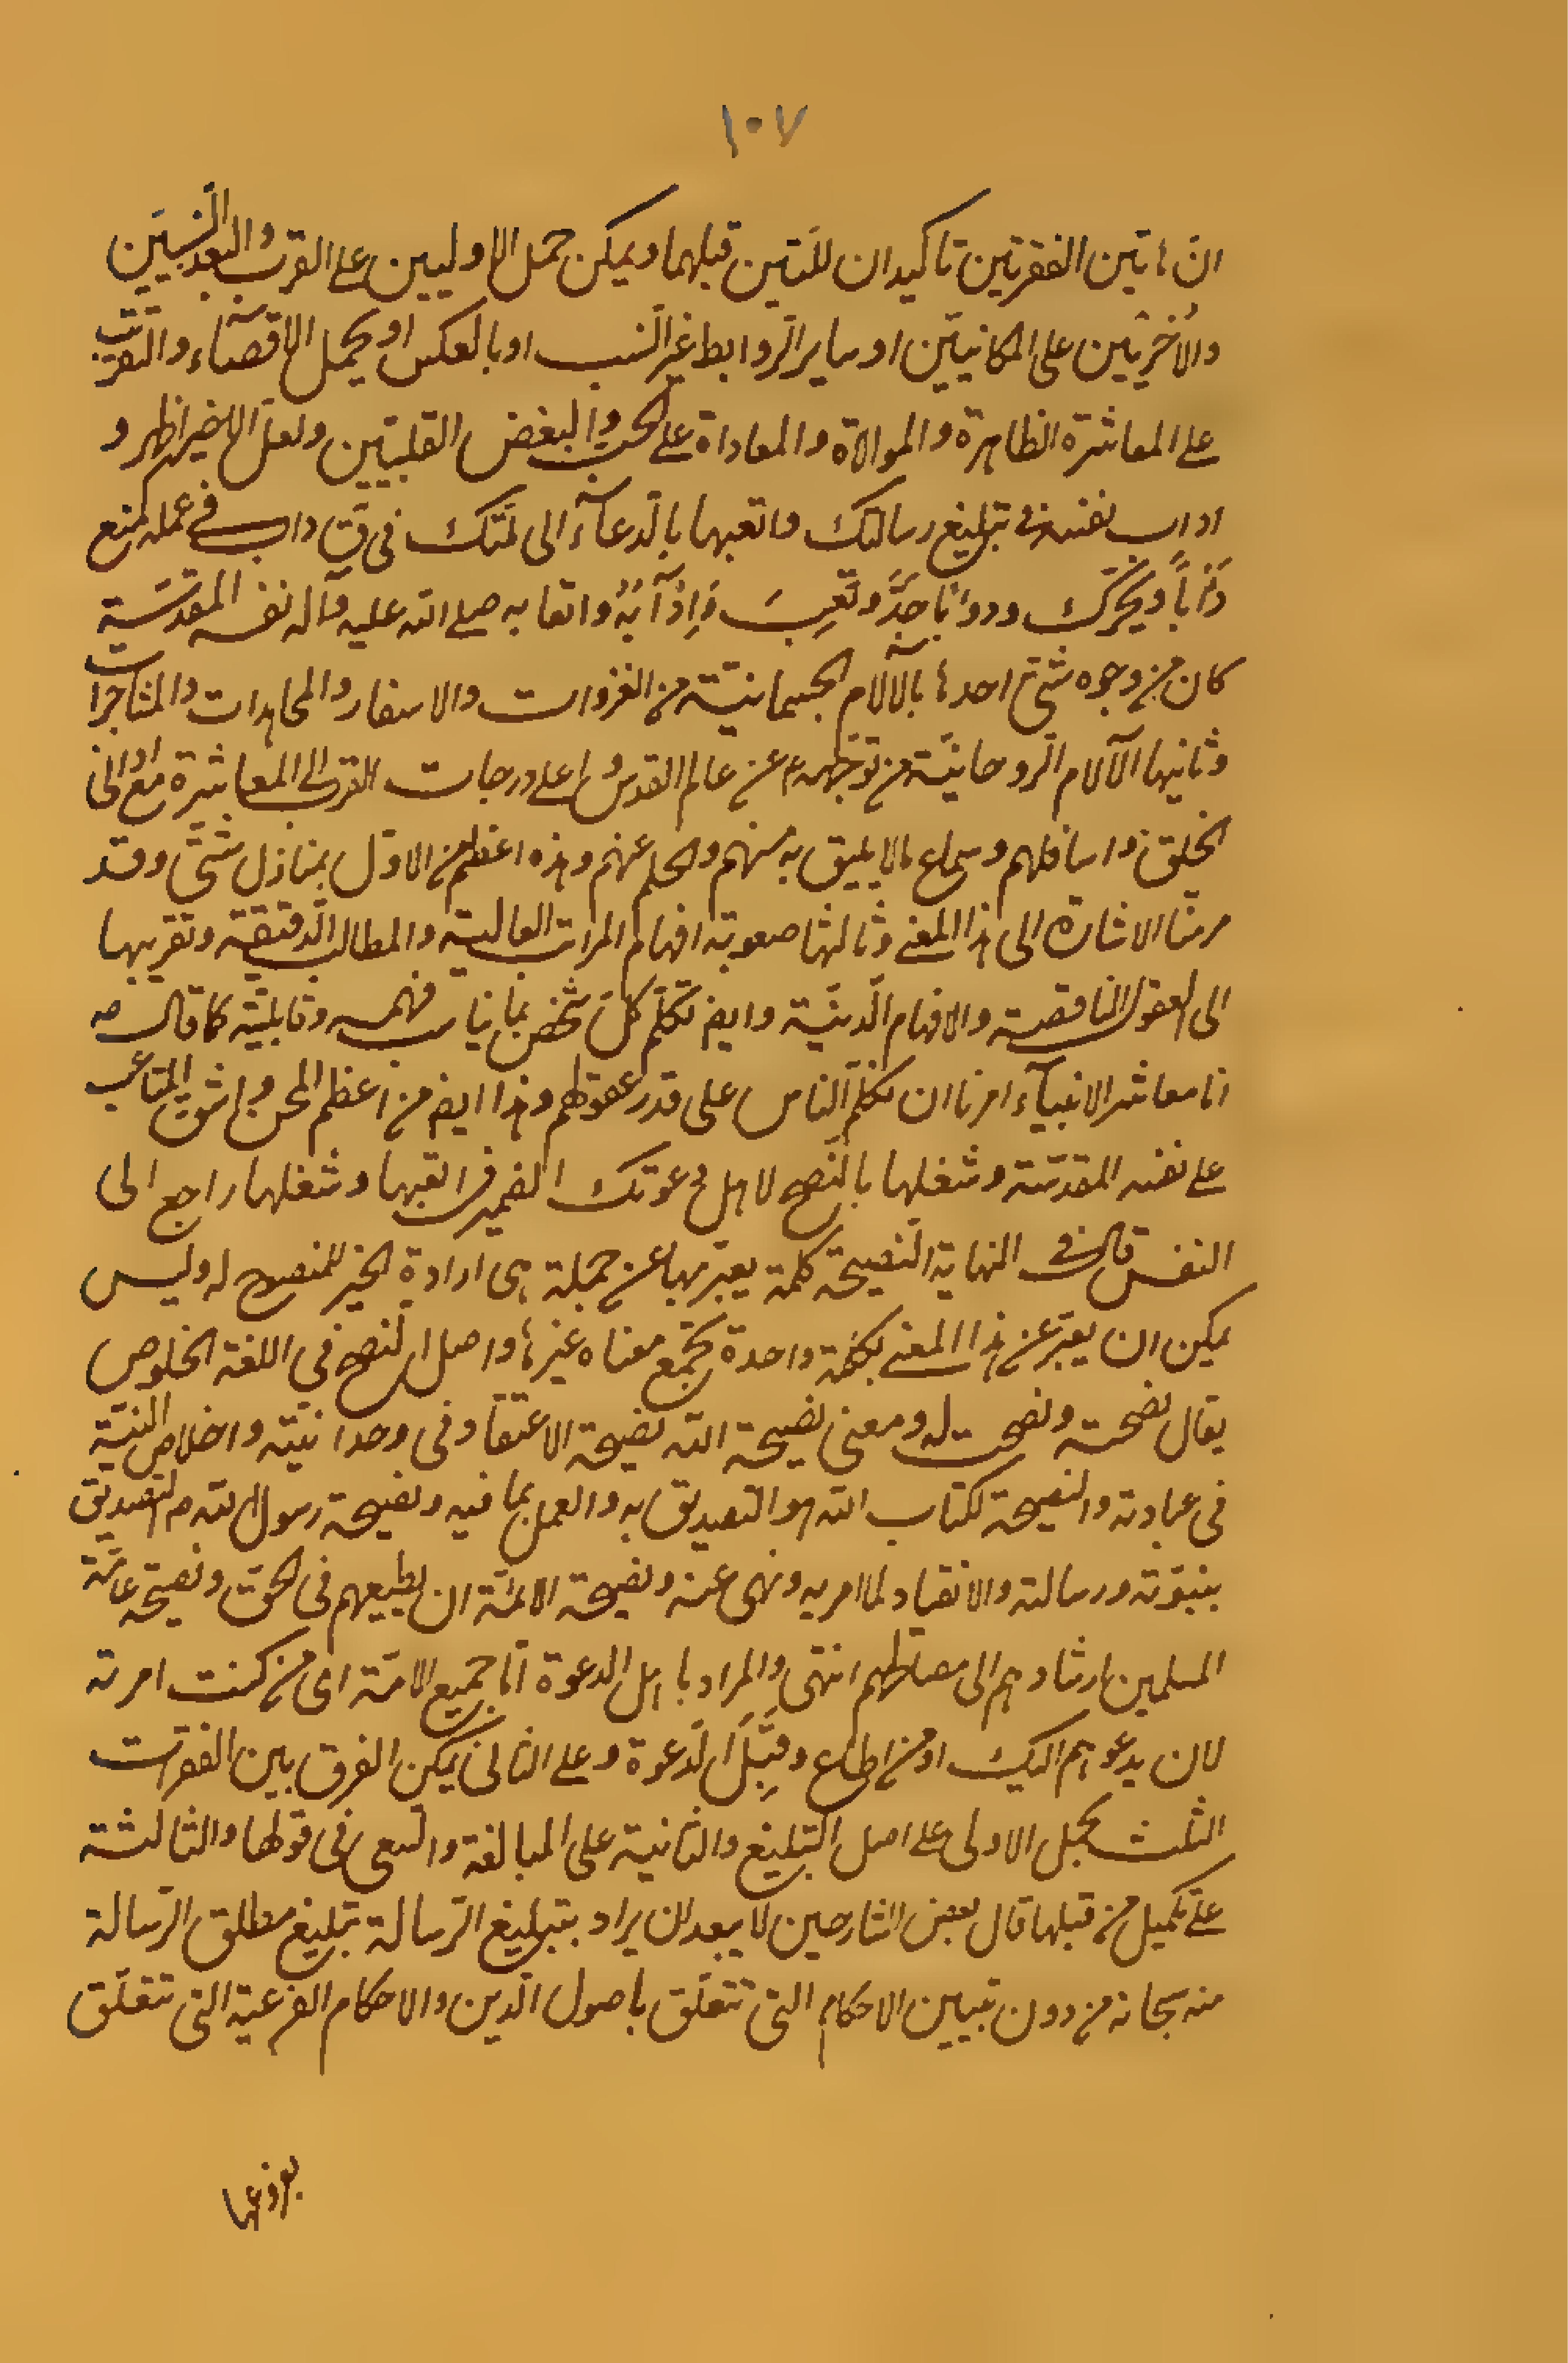 ١٠٧
انّ هاتين الفقرتين تاكيدان للّتين قبلهما ويمكن حمل الاوليين على القرب والبعد النسبيّين
والاُخريين على المكانيّين او ساير الرّوابط غير النّسب او بالعكس او يحمل الاقصآء والتقريب
على المعاشرة الظاهرة والموالاة والمعاداة على الحبّ والبغض القلبيّين ولعلّ الاخير اظهر و
اداب نفسه فى تبليغ رسالتك واتعبها بالدّعآء الى ملّتك فى ق داب فى عمله كمنع
دَاْباً ويحرّك ودوٴباً جدَّ وتَعِبَ وَادْآبَهُ واتعابه صلى الله عليه وآله نفسه المقدّسة
كان من وجوه شتّى احدها بالآلام الجسمانيّة من الغزوات والاسفار والمجاهدات والمشاجرات
وثانيها الآلام الرّوحانيّة من توجّهه ع عن عالم القدس واعلى درجات القرب الى المعاشرة مع ادانى
الخلق واسافلهم وسماع ما لا يليق به منهم والحلم عنهم وهذه اعظم من الاوّل بمنازل شتّى وقد
مرّ منّا الاشارة الى هذا المعنى وثالثها صعوبة افهام المراتب العالية والمطالب الدّقيقة وتقريبها
الى العقول الناقصة والافهام الدّنيّة وايض تكلّم كلّ شخص بما يناسب فهمه وقابليّته كما قال ص
انّا معاشر الانبيآء امرنا ان نكلّم النّاس على قدر عقولهم وهذا ايض من اعظم المحن واشقّ المتاعب
على نفسه المقدّسة وشغلها بالنّصح لاهل دعوتك الضمير فى اتعبها وشغلها راجع الى
النفس قال فى النهاية النّصيحة كلمة يعبّر بها عن جملة هى ارادة الخير للمنصوح له وليس
يمكن ان يعبّر عن هذا المعنى بكلمة واحدة تجمع معناه غيرها واصل النّصح فى اللغة الخلوص
يقال نصحته ونصحت له ومعنى نصيحة الله نصيحة الاعتقاد فى وحدانيّته واخلاص النيّة
فى عبادته والنصيحة لكتاب الله هو التصديق به والعمل بما فيه ونصيحة رسول الله ص التصديق
بنبوّته ورسالته والانقياد لما امر به ونهى عنه ونصيحة الائمّة ان يطيعهم فى الحقّ ونصيحة عامّة
المسلمين ارشادهم الى مصالحهم انتهى والمراد باهل الدعوة امّا جميع الامّة اى من كنت امرته
لان يدعوهم اليك او من اطاع وقَبِلَ الدّعوة وعلى الثانى يمكن الفرق بين الفقرات
الثلث بحمل الاولى على اصل التبليغ والثانية على المبالغة والسعى فى قولها والثالثة
على تكميل من قبلها قال بعض الشارحين لا يبعد ان يراد بتبليغ الرّسالة تبليغ مطلق الرّسالة
منه سبحانه من دون تبيين الاحكام التى تتعلّق باصول الدّين والاحكام الفرعيّة التى تتعلّق
بفروعها